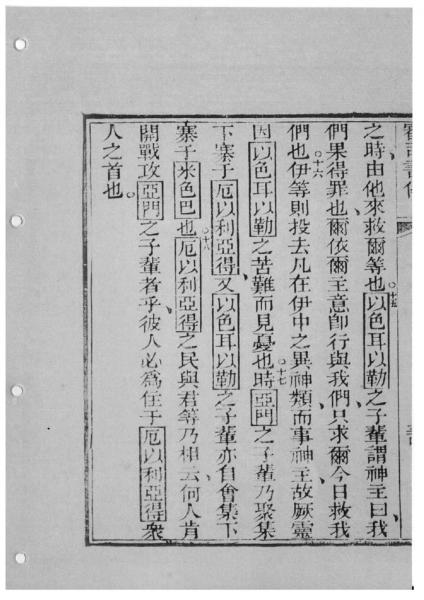 之時由他來救爾等也。十五以色耳以勒之子輩謂神主曰我
們果得罪也爾依爾主意卽行與我們只求爾今日救我
們也。十六伊等則投去凡在伊中之異神類而事神主故厥靈
因以色耳以勒之苦難而見憂也。十七時亞門之子輩乃聚集
下寨于厄以利亞得又以色耳以勒之子輩亦自會集下
寨于米色巴也。十八厄以利亞得之民與君等乃相云何人肯
開戰攻亞門之子輩者乎彼人必爲住于厄以利亞得衆
人之首也。